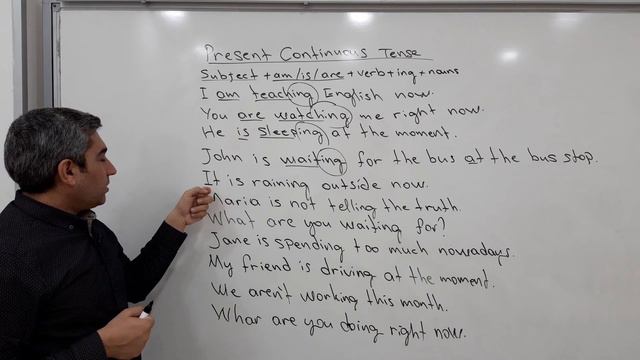 Present Continuous Tense
Subject + am/is/are + verb + ing + nouns
I am teaching English now.
You are watching me right now.
He is sleeping at the moment.
John is waiting for the bus at the bus stop.
It is raining outside now.
Maria is not telling the truth.
What are you waiting for?
Jane is spending too much nowadays.
My friend is driving at the moment.
We aren't working this month.
Whar are you doing right now.